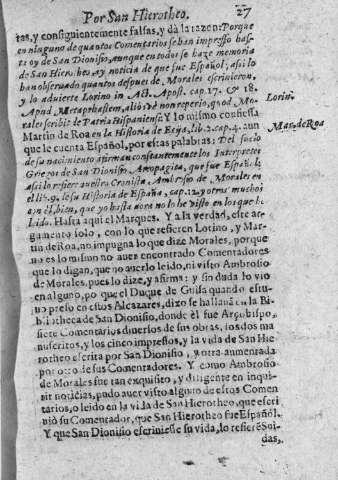 Por San Hierotheo. 27
tas, y consiguientemente falsas, y dà la razon: Porque
en ninguno de quantos Comentarios se han impresso has-
ta oy de San Dionisio, aunque en todos se haze memoria
de San Hierotheo, ay noticia de que fue Español; assi lo
han observado quantos despues de Morales escrivieron,
y lo advierte Lorino in Act. Apost. cap. 17. & 18.
Apud Metaphrastem, aliosve non reperio, quod Mo-
rales scribit de Patria Hispaniense. Y lo mismo confiessa
Martin de Roa en la Historia de Ezija, lib. 2. cap. 4. aun
que le cuenta Español, por estas palabras: Del suelo
de su nacimiento afirman constantemente los Interpretes
Griegos de San Dionisio Areopagita, que fue España
assi lo refiere nuestro Cronista Ambrosio de Morales en
el lib. 9. de su Historia de España, cap. 12. y otros muchos
con èl, bien, que yo hasta aora no lo he visto en los que he
leido. Hasta aqui el Marques. Y a la verdad, este ar-
gumento solo, con lo que refieren Lotino, y Mar-
tin de Roa, no impugna lo que dize Morales, porque
no es lo mismo no auer encontrado Comentadores
que lo digan, que no auerlo leido, ni visto Ambrosio
de Morales, pues lo dize, y afirma: y sin duda lo vio
en alguno, po que el Duque de Guisa quando estu-
uo preso en estos Alcazares, dixo se hallauan en la Bi-
bliotheca de San Dionisio, donde èl fue Arçobispo,
siete Comentarios diuersos de sus obras, los dos ma
nuscritos, y los cinco impressos, y la vida de San Hie
rotheo escrita por San Dionisio, y otra aumentada
por otro de sus Comentadores. Y como Ambrosio
de Morales fue tan exquisito, y diligente en inqui-
rir noticias, pudo auer visto alguno de estos Comen
tarios, o leido en la vida de San Hierotheo, que escri-
uiò su Comentador, que San Hierotheo fue Español.
Y que San Dionisio escriuiesse su vida, lo refiere Sui-
das,
Lorin.
Mar. de Roa